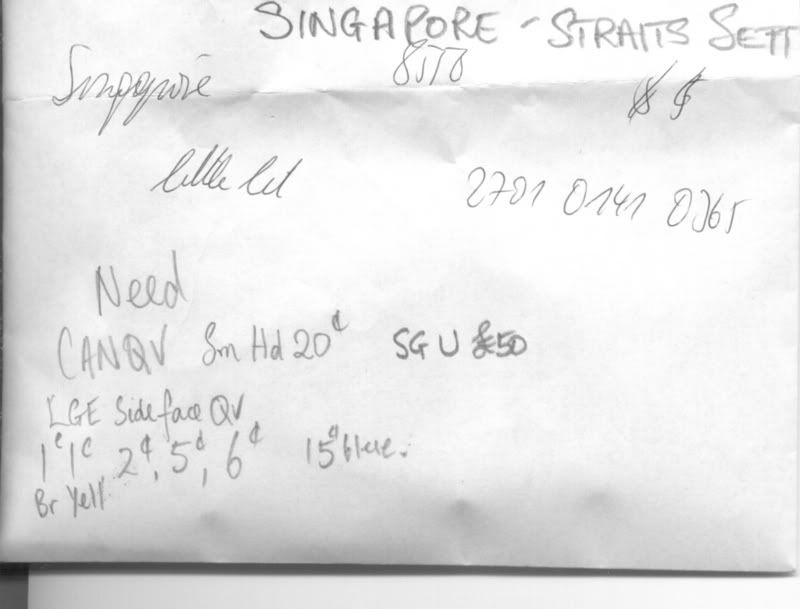 SINGAPORE - STRAITS SETT
Singapore
little lot 2701 0141 0265
Need
CAN QV Sm Hd 20¢ SG U £50
LGE Side face QV
1¢ 1¢ 2¢, 5¢, 6¢ 15¢ blue.
Br Yell